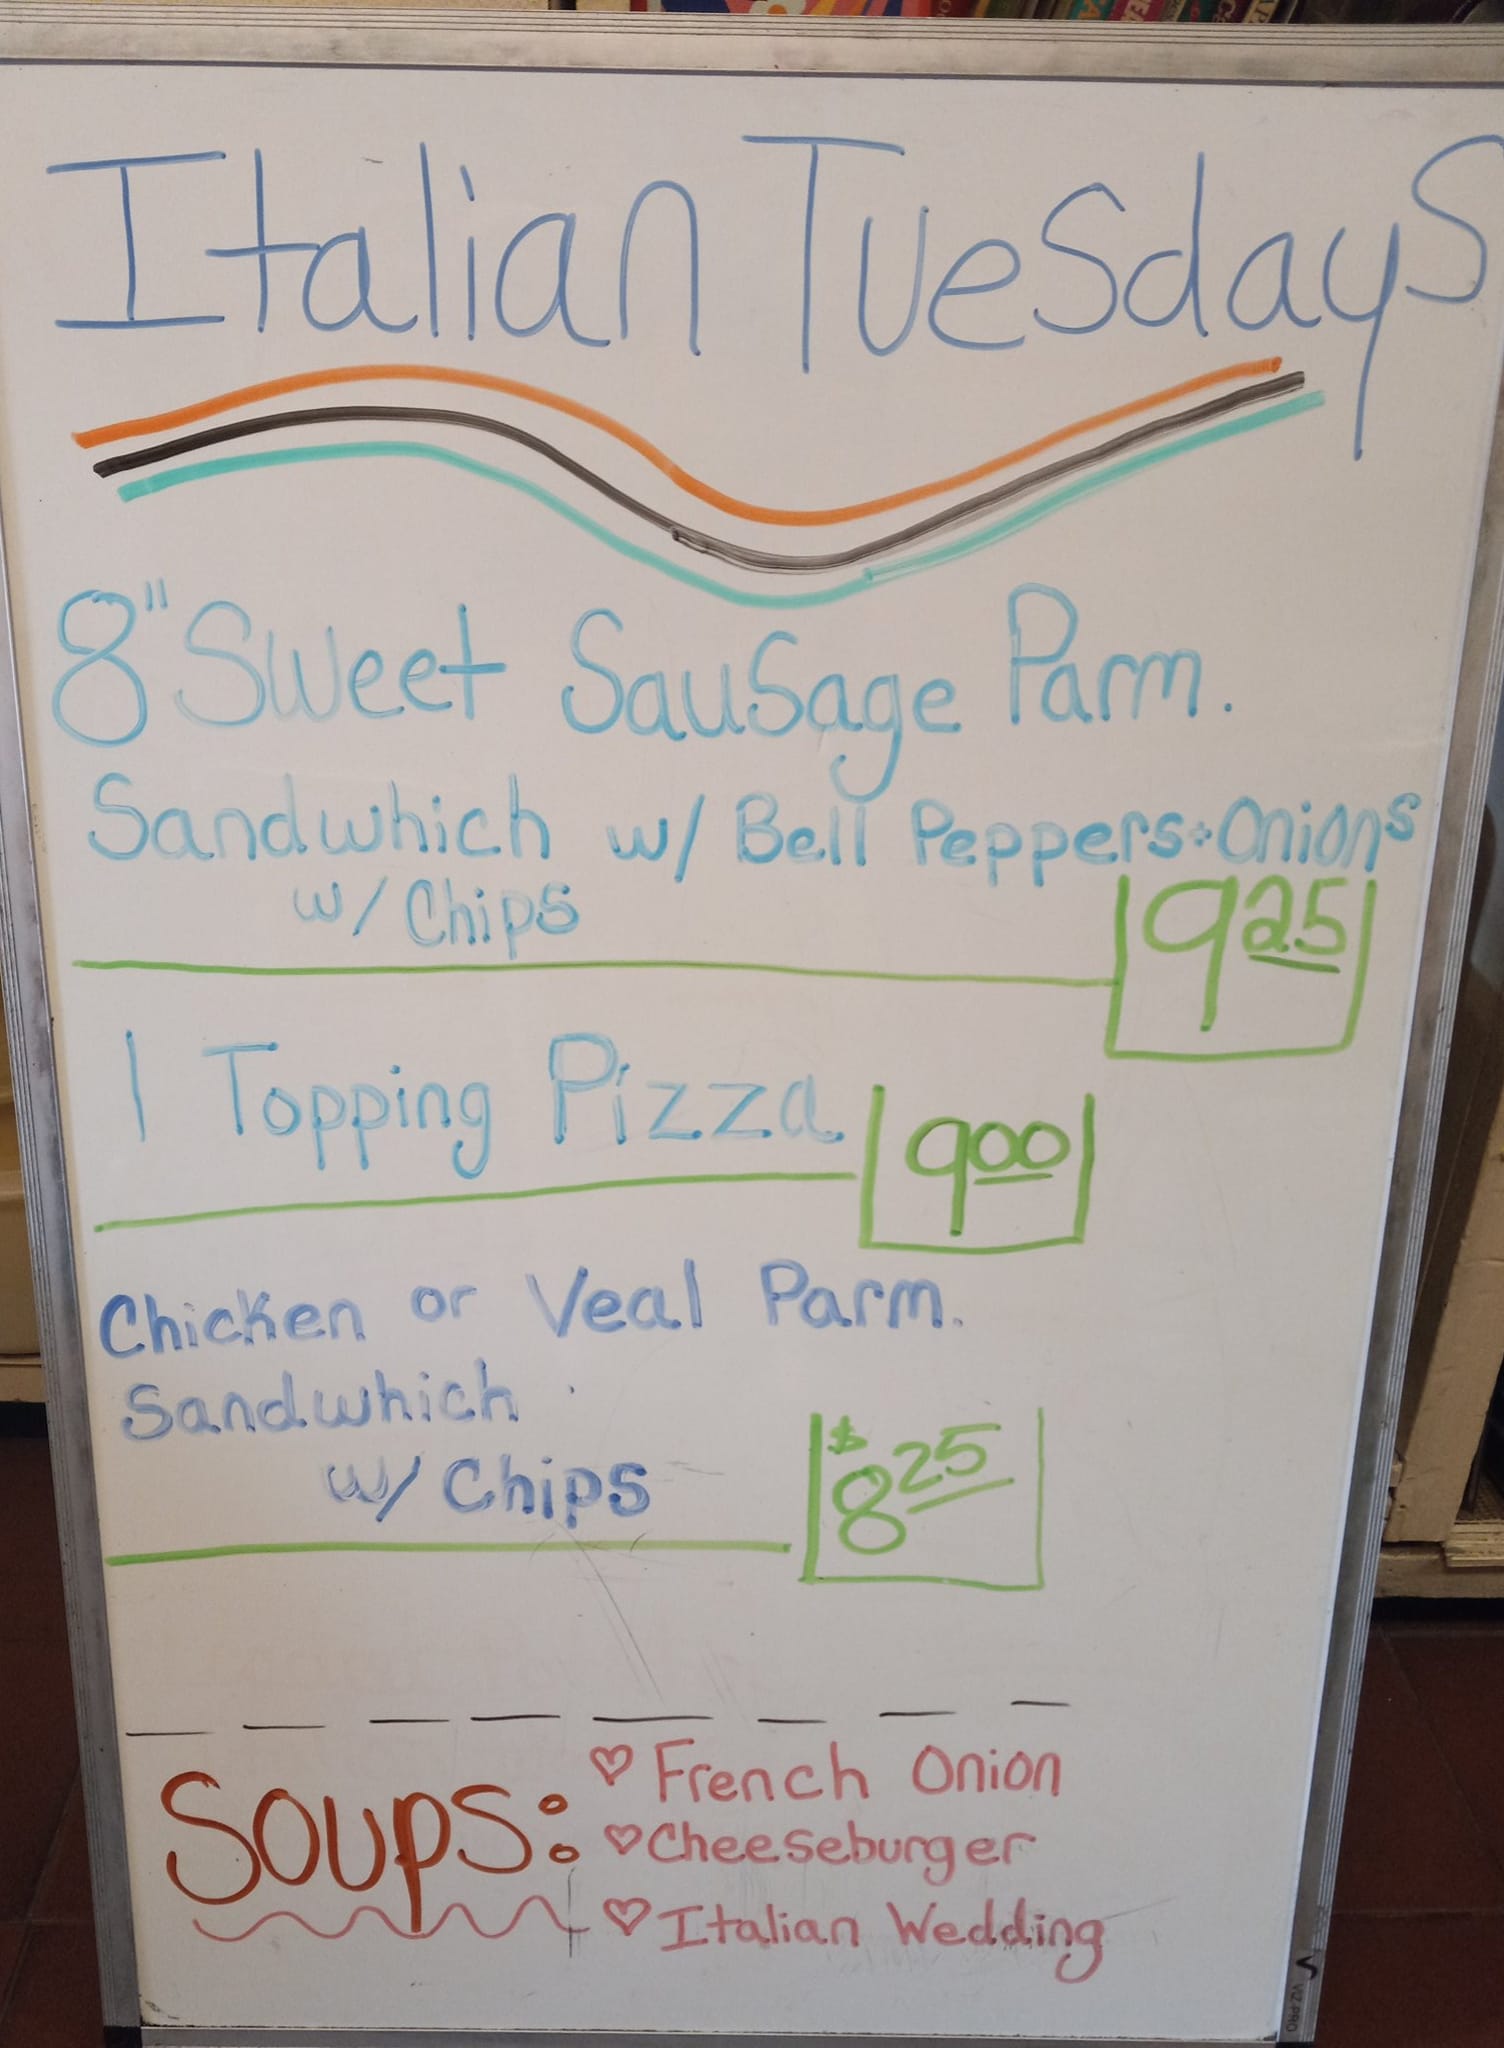 Italian Tuesdays
8" Sweet Sausage Parm.
Sandwhich w/ Bell Peppers + Onions
w/ Chips
9 25
1 Topping Pizza
9 00
Chicken or Veal Parm.
Sandwhich
w/ Chips
$8 25
Soups:
♡ French Onion
♡ Cheeseburger
♡ Italian Wedding
VIZ-PRO